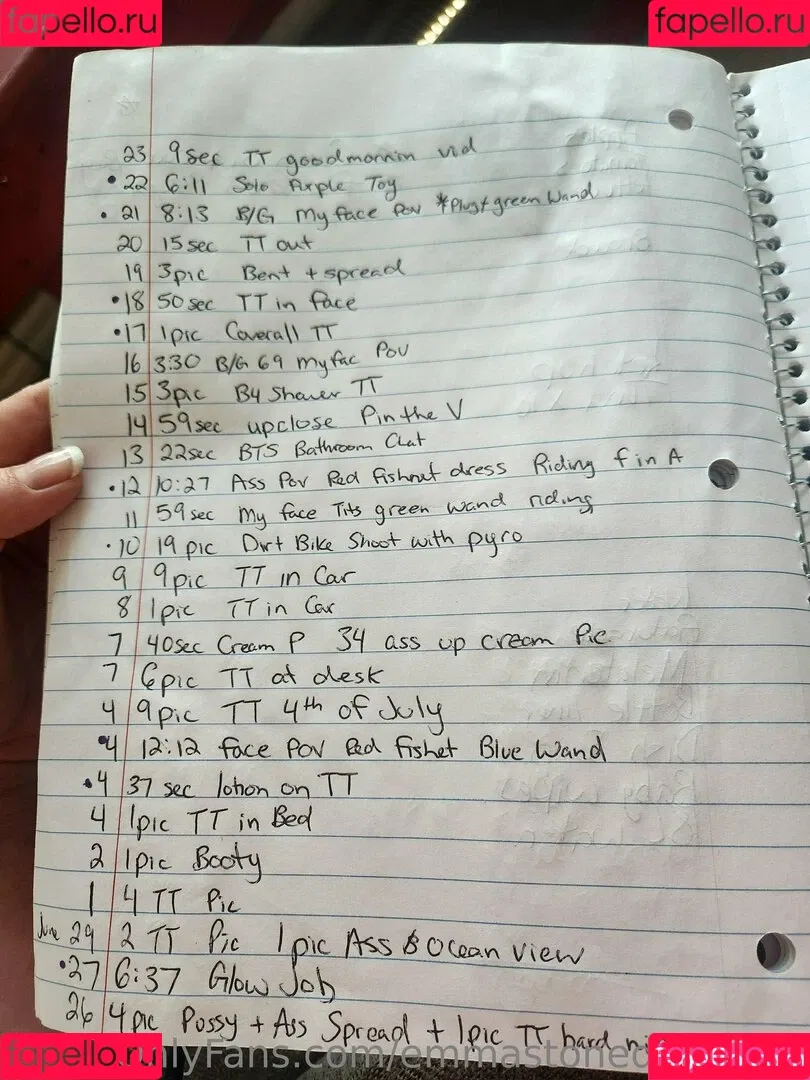 fapello.ru fapello.ru
23 9sec TT goodmornin vid
• 22 6:11 Solo Purple Toy
• 21 8:13 B/G My face POV *Plug+green Wand
20 15sec TT out
19 3pic Bent + spread
• 18 50sec TT in face
• 17 1pic Coverall TT
16 3:30 B/G 69 my fac POV
15 3pic B4 Shower TT
14 59sec upclose Pin the V
13 22sec BTS Bathroom Chat
• 12 10:27 Ass Pov Red Fishnut dress Riding f in A
11 59sec My face Tits green wand riding
• 10 19 pic Dirt Bike Shoot with pyro
9 9pic TT in Car
8 1pic TT in Car
7 40sec Cream P 34 ass up cream Pic
7 6pic TT at desk
4 9pic TT 4th of July
• 4 12:12 face POV Red Fishet Blue Wand
• 4 37 sec lotion on TT
4 1pic TT in Bed
2 1pic Booty
1 4 TT Pic
June 29 2 TT Pic 1pic Ass & Ocean view
• 27 6:37 Glow Job
26 4pic Pussy + Ass Spread + 1pic TT hard
fapello.ru OnlyFans.com/emmastoned fapello.ru